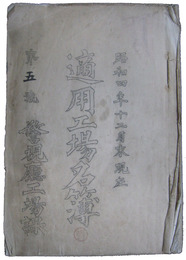 昭和四年十二月末現在
適用工場名簿
第五號
警視廳工場課